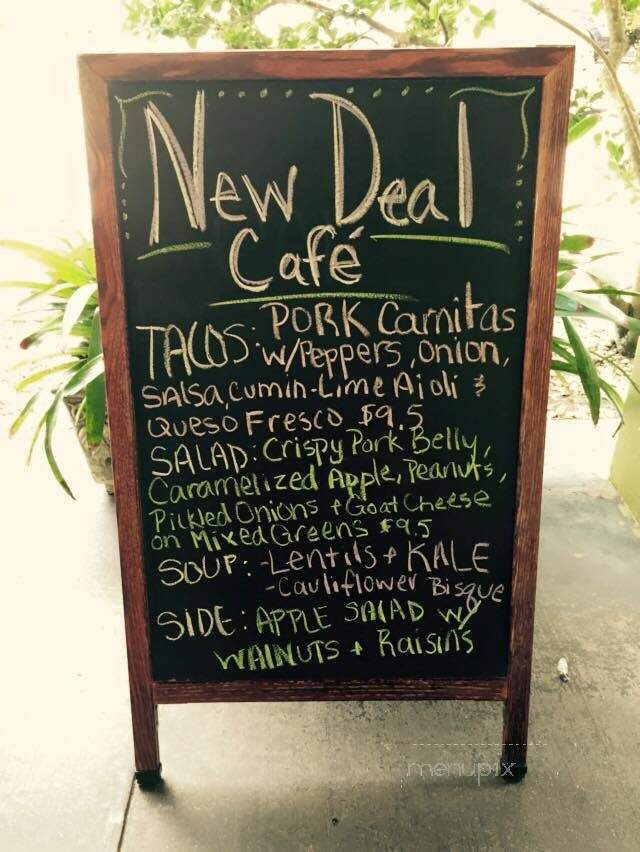 New Deal
Café
TACOS: PORK Carnitas
w/Peppers, onion,
SAlSA, Cumin-Lime Aioli &
Queso Fresco $9.5
SALAD: Crispy Pork Belly,
Caramelized Apple, Peanuts,
Pickled Onions + Goat Cheese
on Mixed Greens $9.5
SOUP: -Lentils + KALE
-Cauliflower Bisque
SIDE: APPLE SAlAD w/
WAlNUTS + Raisins
menupix